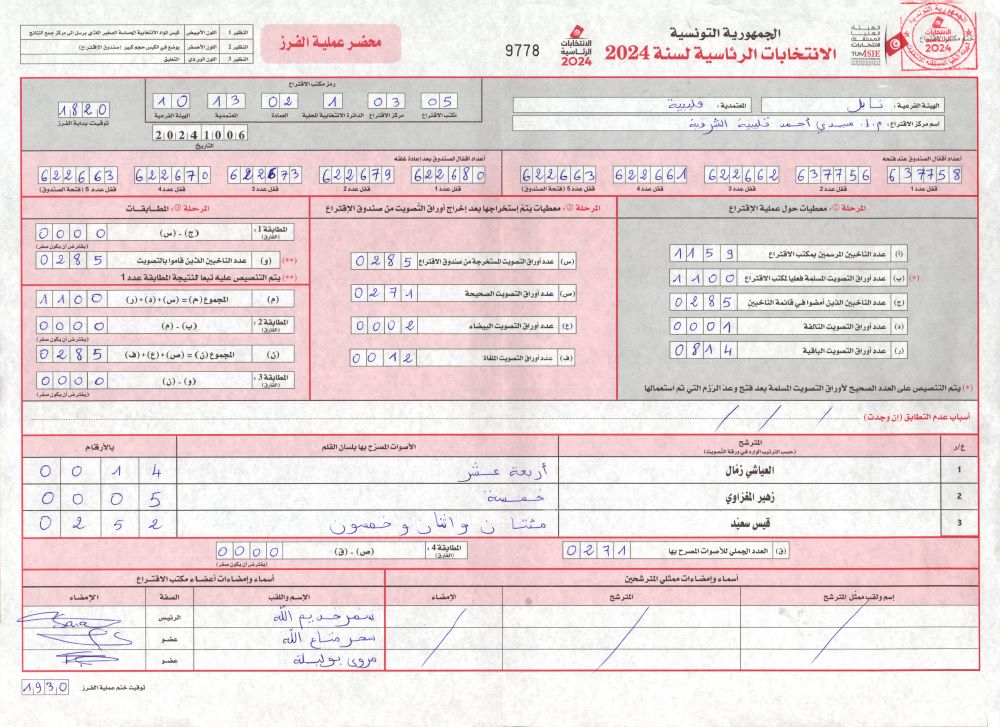 الجمهورية التونسية
الانتخابات الرئاسية لسنة 2024
9778
الانتخابات الرئاسية 2024
محضر عملية الفرز
النظير 1 اللون الأبيض كيس المواد الانتخابية الحساسة الصغير الذي يرسل إلى مركز جمع النتائج
النظير 2 اللون الأصفر يوضع في الكيس حجم كبير (صندوق الإقتراع)
النظير 3 اللون الوردي التعليق
الهيئة العليا المستقلة للانتخابات
الهيئة الفرعية: نابل المعتمدية: قليبية
اسم مركز الاقتراع: م.إ. سيدي أحمد قليبية الشرقية
رمز مكتب الاقتراع
05 03 1 02 13 10
مكتب الاقتراع مركز الاقتراع الدائرة الانتخابية المحلية العمادة المعتمدية الهيئة الفرعية
1820
توقيت بداية الفرز
20241006
التاريخ
أعداد أقفال الصندوق عند فتحه
637758 637756 622662 622661 622663
قفل عدد 1 قفل عدد 2 قفل عدد 3 قفل عدد 4 قفل عدد 5 (فتحة الصندوق)
أعداد أقفال الصندوق بعد إعادة غلقه
622680 622679 622673 622670 622663
قفل عدد 1 قفل عدد 2 قفل عدد 3 قفل عدد 4 قفل عدد 5 (فتحة الصندوق)
المرحلة ①: معطيات حول عملية الاقتراع
(أ) عدد الناخبين المرسمين بمكتب الاقتراع 1159
(*) (ب) عدد أوراق التصويت المسلمة فعليا لمكتب الاقتراع 1100
(ج) عدد الناخبين الذين أمضوا في قائمة الناخبين 0285
(د) عدد أوراق التصويت التالفة 0001
(ر) عدد أوراق التصويت الباقية 0814
(*) يتم التنصيص على العدد الصحيح لأوراق التصويت المسلمة بعد فتح وعد الرزم التي تم استعمالها
المرحلة ②: معطيات يتم إستخراجها بعد إخراج أوراق التصويت من صندوق الاقتراع
(س) عدد أوراق التصويت المستخرجة من صندوق الاقتراع 0285
(ص) عدد أوراق التصويت الصحيحة 0271
(ع) عدد أوراق التصويت البيضاء 0002
(ف) عدد أوراق التصويت الملغاة 0012
المرحلة ③: المطابقات
المطابقة 1: (الفارق) (ج) - (س) 0000
(يفترض أن يكون صفر)
(**) (و) عدد الناخبين الذين قاموا بالتصويت 0285
(**) يتم التنصيص عليه تبعا لنتيجة المطابقة عدد 1
(م) المجموع (م) = (س)+(د)+(ر) 1100
المطابقة 2: (الفارق) (ب) - (م) 0000
(يفترض أن يكون صفر)
(ن) المجموع (ن) = (ص)+(ع)+(ف) 0285
المطابقة 3: (الفارق) (و) - (ن) 0000
(يفترض أن يكون صفر)
أسباب عدم التطابق (إن وجدت) / / /
ع/ر المترشح (حسب الترتيب الوارد في ورقة التصويت) الأصوات المصرح بها بلسان القلم بالأرقام
1 العياشي زمّال أربعة عشر 0014
2 زهير المغزاوي خمسة 0005
3 قيس سعيّد مئتان واثنان وخمسون 0252
(ق) العدد الجملي للأصوات المصرح بها 0271
المطابقة 4: (الفارق) (ص) - (ق) 0000
(يفترض أن يكون صفر)
أسماء وإمضاءات ممثلي المترشحين
إسم ولقب ممثل المترشح المترشح الإمضاء
/ / /
أسماء وإمضاءات أعضاء مكتب الاقتراع
الإسم واللقب الصفة الإمضاء
سمر خديم الله الرئيس
سحر متاع الله عضو
مروى بوليلة عضو
توقيت ختم عملية الفرز 1930